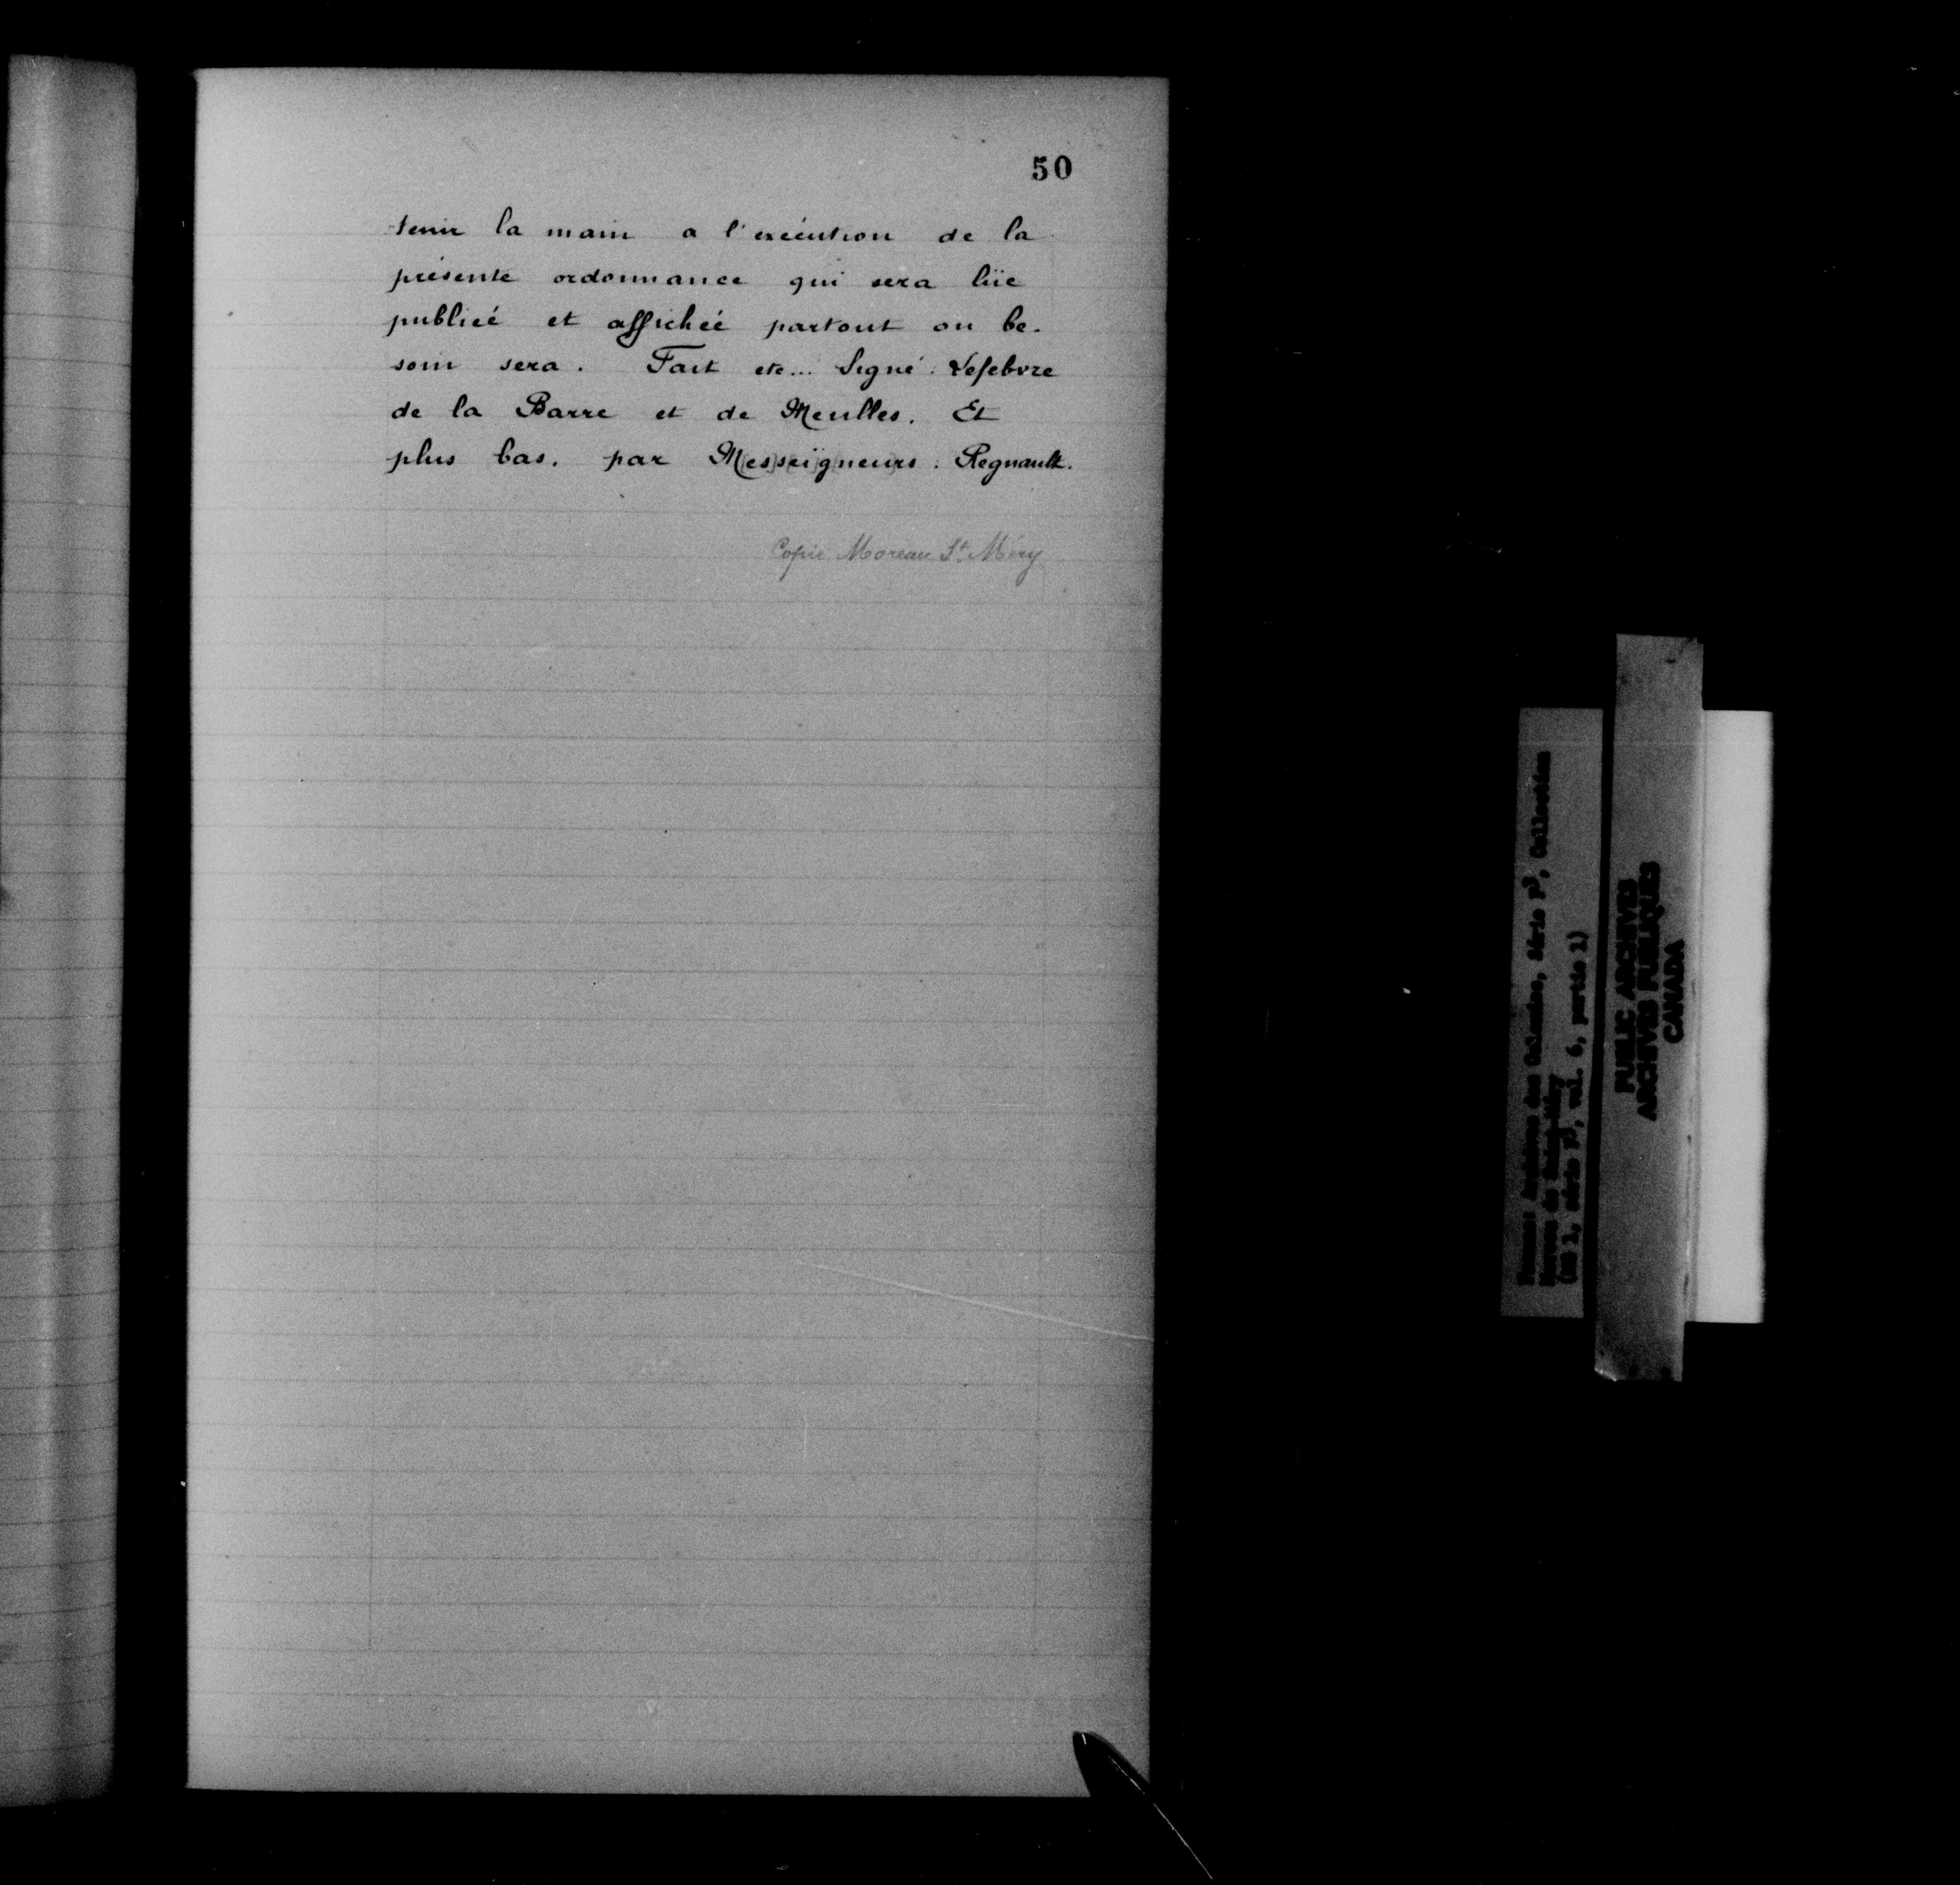 50
tenir la main a l'exécution de la
présente ordonnance qui sera lüe
publieé et afficheé partout ou be-
soin sera. Fait etc... Signé: Lefebvre
de la Barre et de Meulles. Et
plus bas. par Messeigneurs: Regnault.
Copie Moreau St. Méry
France: Archives des Colonies, Série F3, Collection
Moreau de Saint-Méry
(MG 1, série F3, vol. 6, partie 1)
PUBLIC ARCHIVES
ARCHIVES PUBLIQUES
CANADA